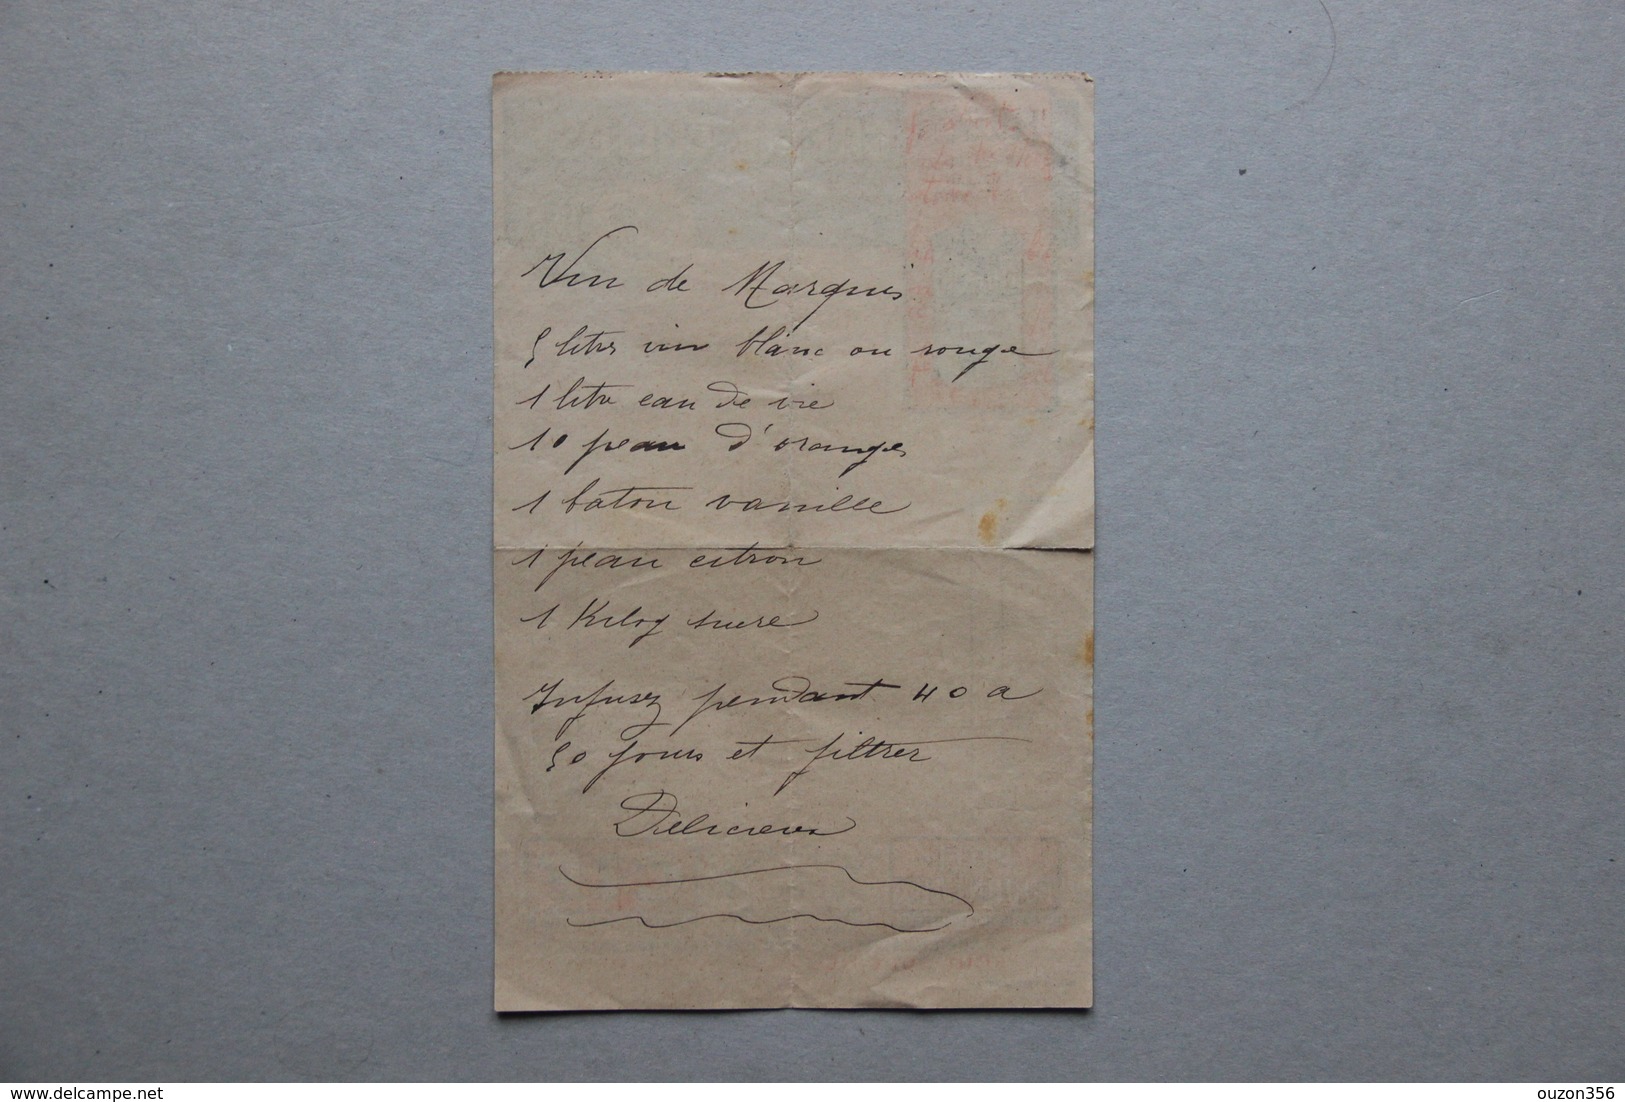 Vin de Marquis
5 litres vin blanc ou rouge
1 litre eau de vie
10 peau d'oranges
1 baton vanille
1 peau citron
1 Kilog sucre
Infusez pendant 40 a
50 jours et filtrer
Delicieux
www.delcampe.net
ouzon356